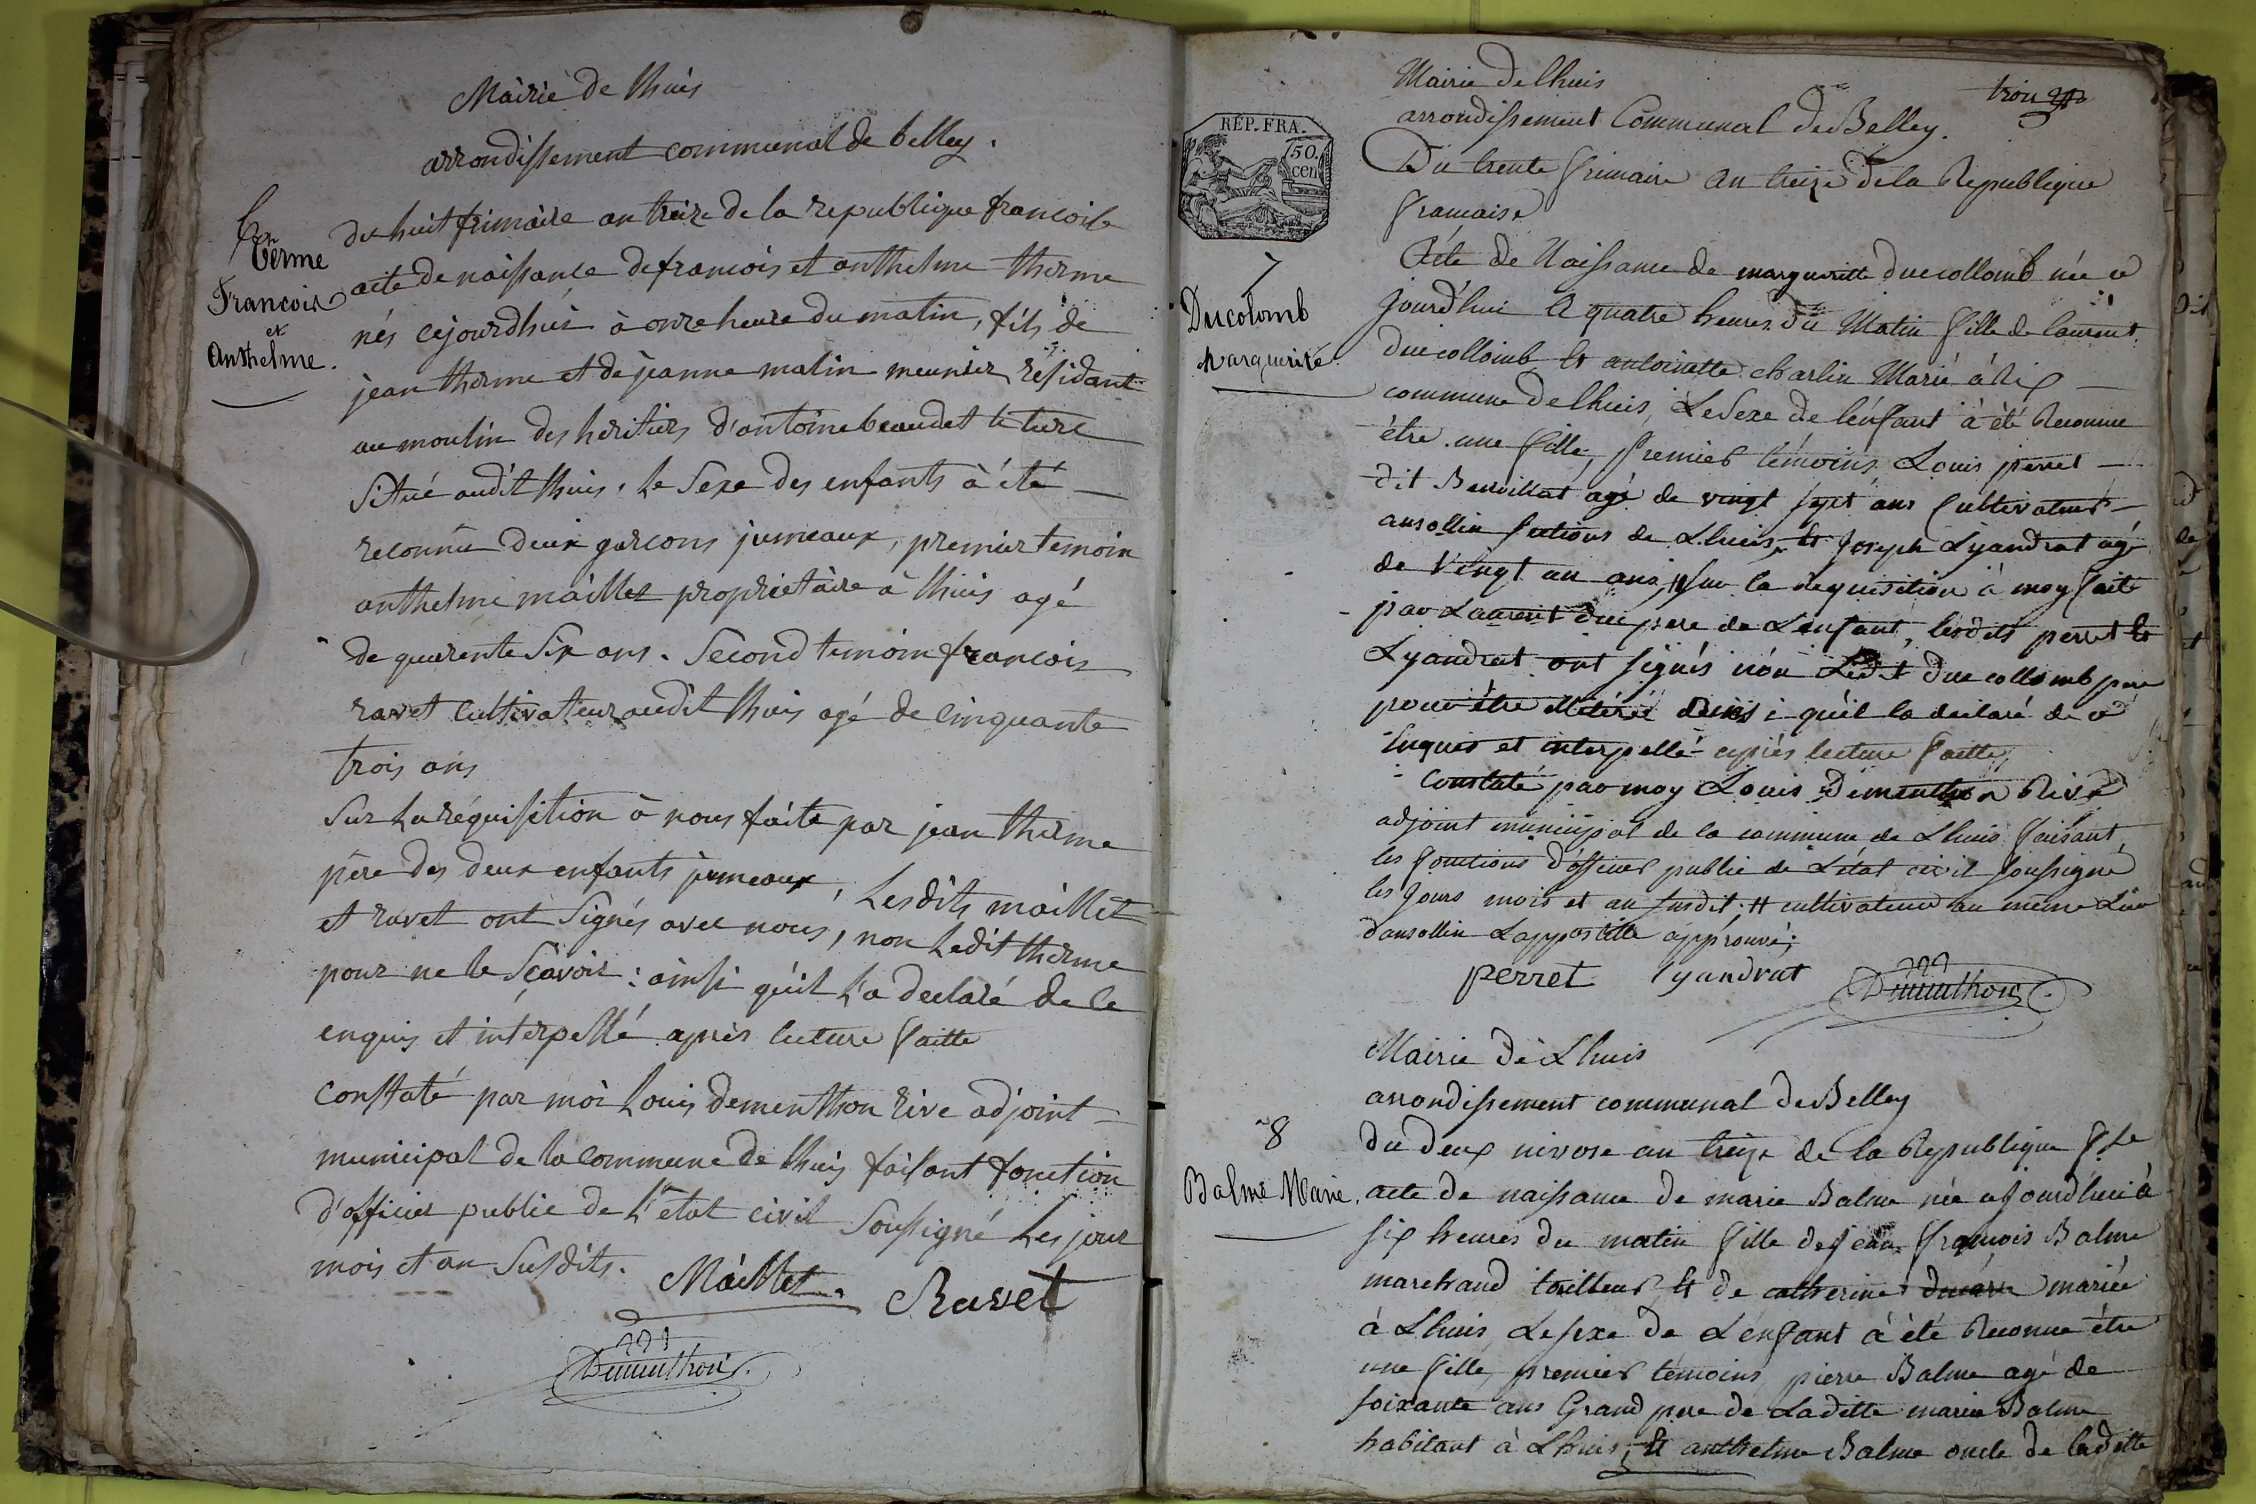 Mairie de lhuis
arrondissement communal de belley.
6
Terme
Francois
et
Anthelme.
du huit frimaire an treize de la republique francoise
acte de naissance de francois et anthelme therme
nés cejourdhui à onze heure du matin, fils de
jean therme et de jeanne matin meunier résidant
au moulin des heritiers d'antoine beaudet
situé audit lhuis. le sexe des enfants à été
reconnu deux garcons jumeaux, premier temoin
anthelme maillet proprietaire à lhuis agé
de quarente six ans. second temoin francois
ravet cultivateur audit lhuis agé de cinquante
trois ans
sur la réquisition à nous faite par jean therme
père des deux enfants jumeaux, lesdits maillet
et ravet ont signés avec nous, non ledit therme
pour ne le sçavoir: ainsi qu'il l'a declaré de ce
enquis et interpellé après lecture faitte
constaté par moi louis dementhon rive adjoint
municipal de la commune de lhuis faisant fonction
d'officier public de l'état civil soussigné les jour
mois et an susdits.
Maillet
Ravet
Dementhon
trois
Mairie de lhuis
arrondissement Communal de Belley.
REP. FRA.
50.
cen
Du trente frimaire an treize de la Republique
francaise
7
Ducolomb
Marguerite
Acte de Naissance de margueritte duccollomb née ce
jourd'hui a quatre heures du Matin fille de laurent
duccollomb et antoinette charlin Marié à Rix
commune de lhuis, Le sexe de l'enfant à été Reconnue
être une fille, premier témoins Louis perret
dit Bervillat agé de vingt sept ans Cultivateur
ansollin de Lhuis, et Joseph Lyandrat agé
de vingt un ans, # sur la requisition à moy faite
par Laurent duc pere de L'enfant, lesdits perret et
Lyandrat ont signés non Ledit duccollomb pere
pour être illiteré ainsi quil la declaré de ce
enquis et interpellé après lecture faitte,
Constaté par moy Louis Dementhon Rive
adjoint municipal de la commune de Lhuis faisant
les fonctions d'officier public de Létat civil soussigné
les jours mois et an susdit; # cultivateur au même Lieu
dansollin Lappostille approuvé;
perret
lyandrat
Dementhon
Mairie de Lhuis
arrondissement communal de Belley
8
Balme Marie.
du deux nivose an treize de la Republique fse
acte de naissance de marie Balme née cejourdhui à
six heures du matin fille de jean françois Balme
marchand tailleur et de catherine mariée
à Lhuis, Le sexe de L'enfant à été Reconnu être
une fille, premier témoins pierre Balme agé de
soixante ans Grand pere de Laditte marie Balme
habitant à Lhuis, et anthelme Balme oncle de laditte